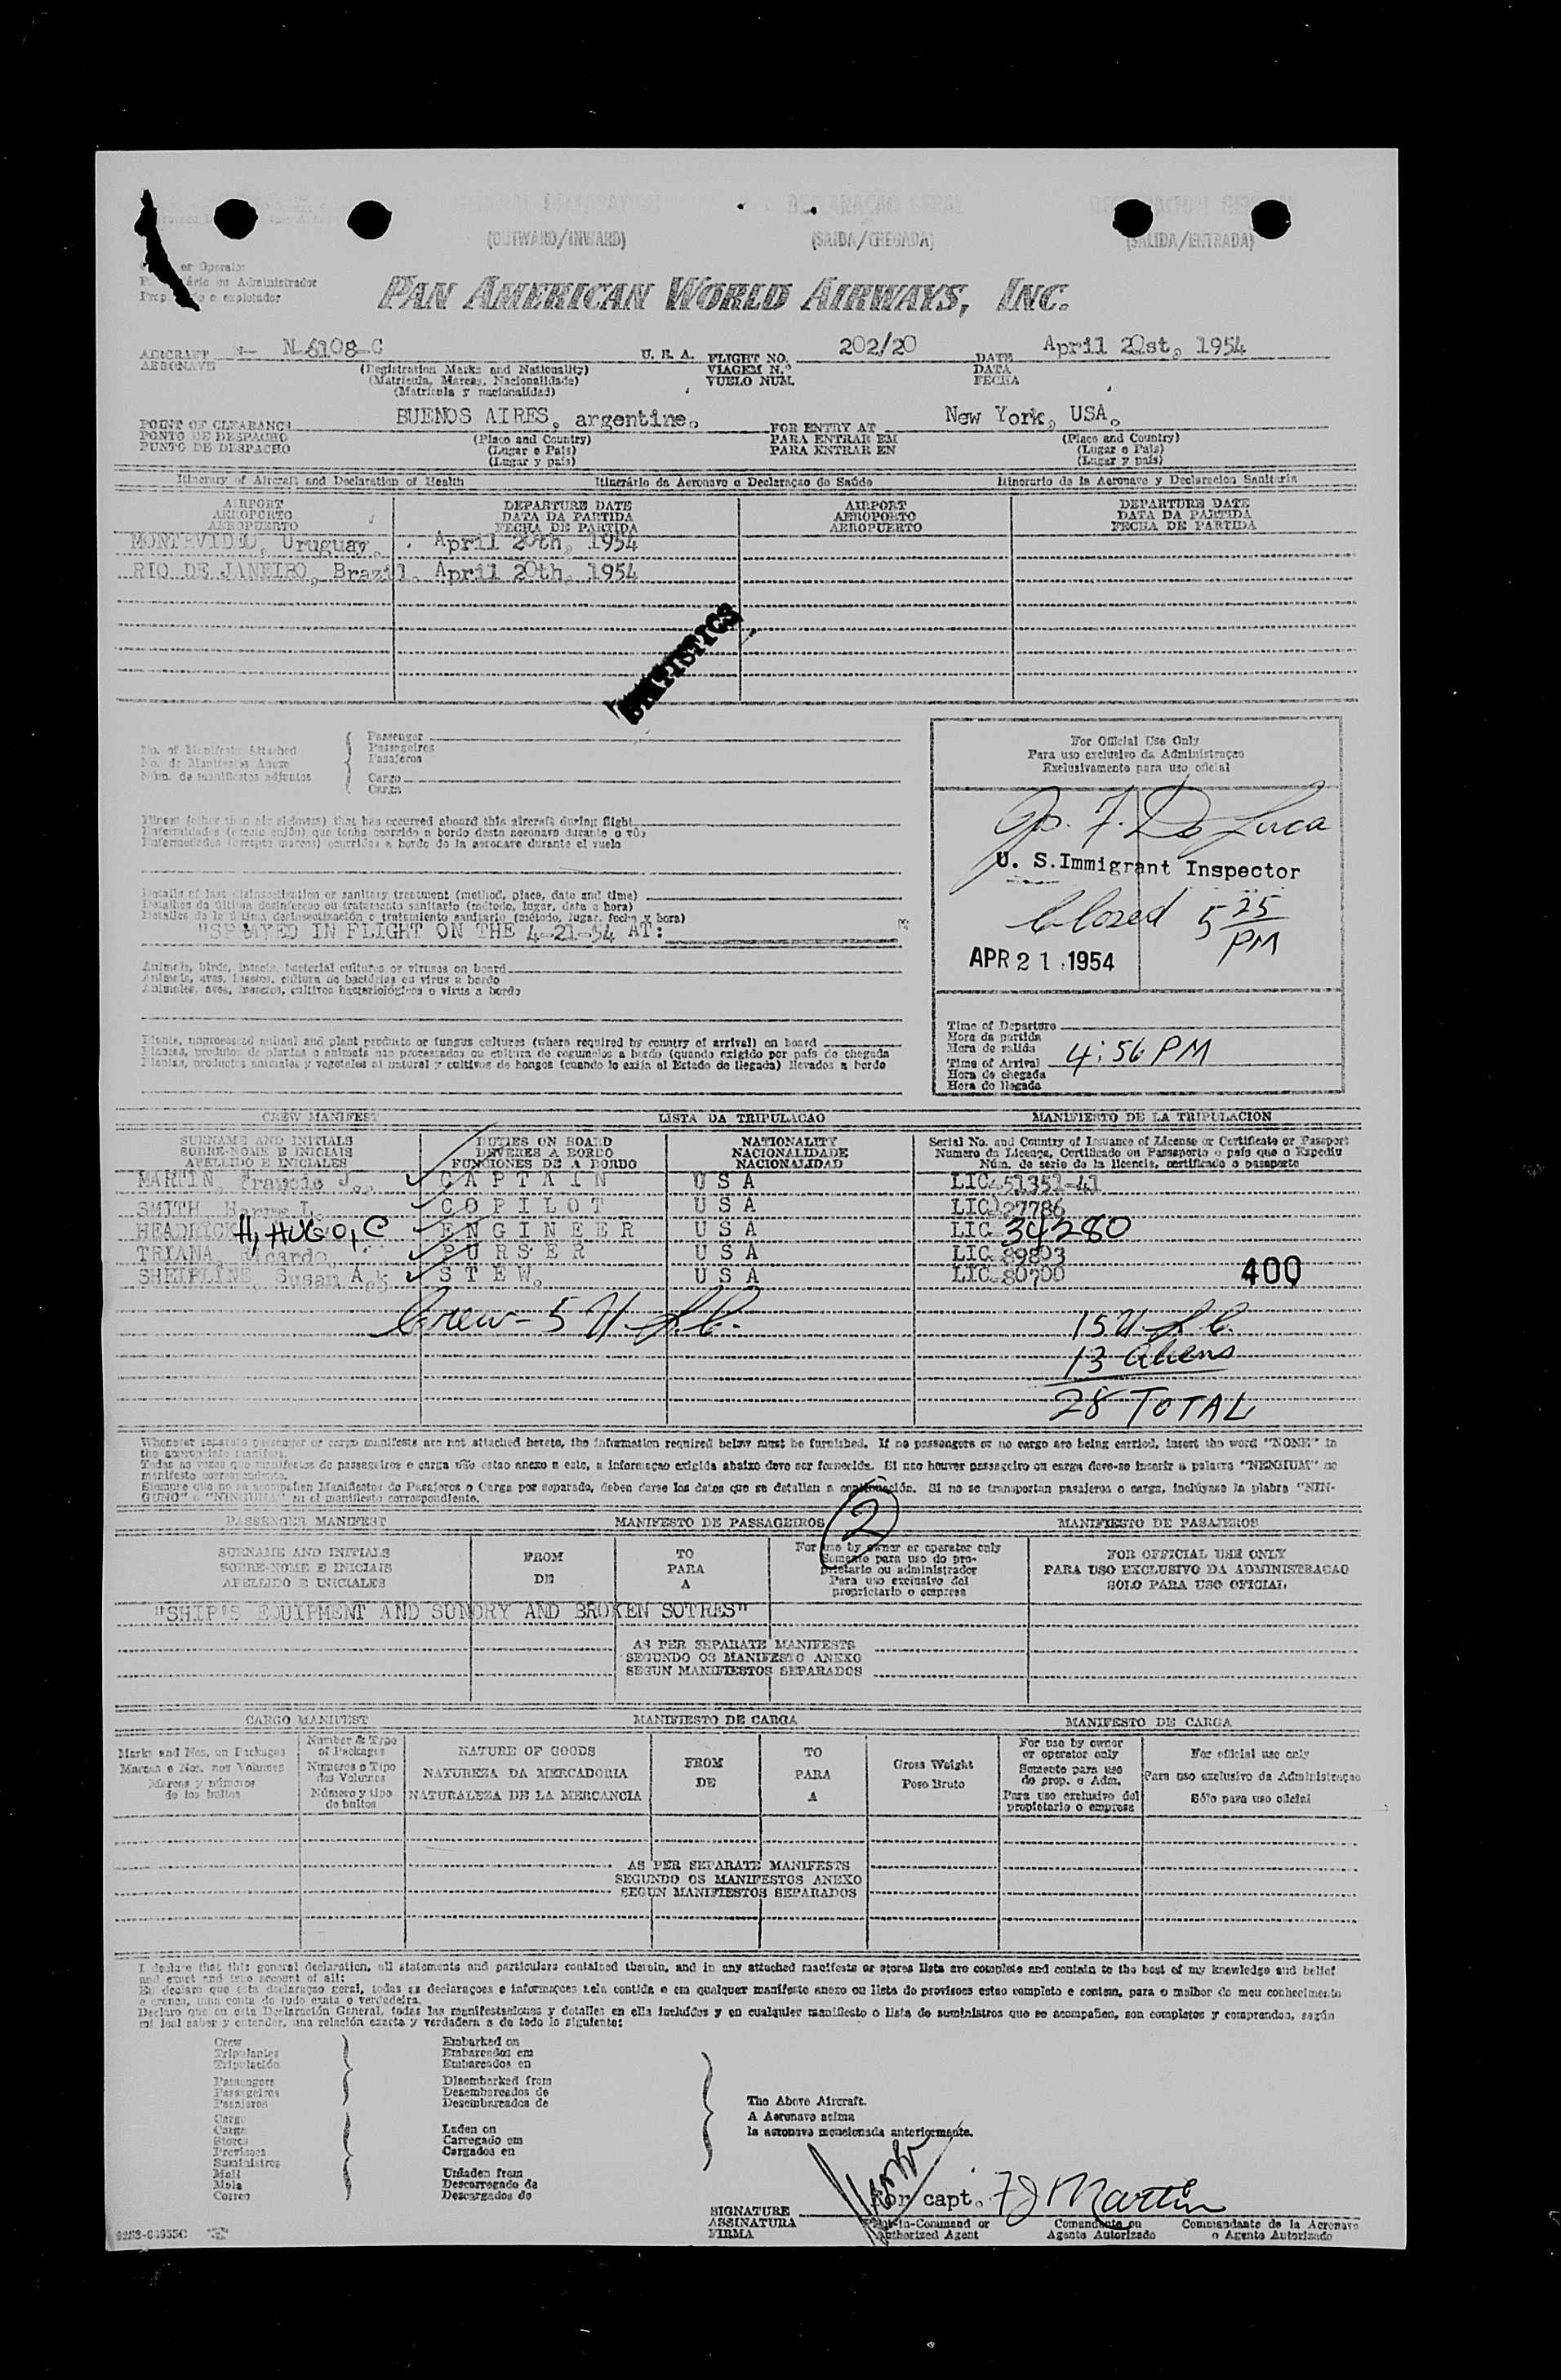 GENERAL DECLARATION DECLARAÇÃO GERAL
(OUTWARD/INWARD) (SAIDA/CHEGADA) (SALIDA/ENTRADA)
er Operator
ário ou Administrador
Prop o explotador
PAN AMERICAN WORLD AIRWAYS, INC.
AIRCRAFT N- N-6108-C U. S. A. FLIGHT NO. 202/20 DATE April 21st, 1954
AERONAVE (Registration Marks and Nationality) VIAGEM N.º DATA
(Matricula, Marcas, Nacionalidade) VUELO NUM. FECHA
(Matricula y nacionalidad)
POINT OF CLEARANCE BUENOS AIRES, argentine. FOR ENTRY AT New York, USA.
PONTO DE DESPACHO (Place and Country) PARA ENTRAR EM (Place and Country)
PUNTO DE DESPACHO (Lugar e Pais) PARA ENTRAR EN (Lugar e Pais)
(Lugar y pais) (Lugar y pais)
Itinerary of Aircraft and Declaration of Health Itinerário da Aeronave e Declaraçao de Saúde Itinerario de la Aeronave y Declaracion Sanitaria
AIRPORT DEPARTURE DATE AIRPORT DEPARTURE DATE
AEROPORTO DATA DA PARTIDA AEROPORTO DATA DA PARTIDA
AEROPUERTO FECHA DE PARTIDA AEROPUERTO FECHA DE PARTIDA
MONTEVIDEO, Uruguay. April 20th, 1954
RIO DE JANEIRO, Brazil. April 20th, 1954
STATISTICS
No. of Manifests Attached Passenger
No. de Manifestos Anexo Passageiros
Núm. de manifiestos adjuntos Pasajeros
Cargo
Carga
For Official Use Only
Para uso exclusivo da Administraçao
Exclusivamente para uso oficial
Jos. F. De Luca
U. S. Immigrant Inspector
Closed 5 25 PM
APR 21 1954
Illness (other than air sickness) that has occurred aboard this aircraft during flight
Enfermidades (exceto enjôo) que tenha ocorrido a bordo desta aeronave durante o vôo
Enfermedades (excepto mareos) ocurridas a bordo de la aeronave durante el vuelo
Details of last disinsectization or sanitary treatment (method, place, date and time)
Detalhes da última desinfecsao ou tratamento sanitario (método, lugar, data e hora)
Detalles de la última desinsectización o tratamiento sanitario (método, lugar, fecha y hora)
"SPRAYED IN FLIGHT ON THE 4-21-54 AT:
Animals, birds, insects, bacterial cultures or viruses on board
Animais, aves, insetos, cultura de bactérias ou virus a bordo
Animales, aves, insectos, cultivos bacteriológicos o virus a bordo
Plants, unprocessed animal and plant products or fungus cultures (where required by country of arrival) on board
Plantas, produtos de plantas e animais nao processados ou cultura de cogumelos a bordo (quando exigido por pais de chegada
Plantas, productos animales y vegetales al natural y cultivos de hongos (cuando lo exija el Estado de llegada) llevados a bordo
Time of Departure
Hora da partida
Hora de salida
Time of Arrival 4:56 PM
Hora de chegada
Hora de llegada
CREW MANIFEST LISTA DA TRIPULACAO MANIFIESTO DE LA TRIPULACION
SURNAME AND INITIALS DUTIES ON BOARD NATIONALITY Serial No. and Country of Issuance of License or Certificate or Passport
SOBRE-NOME E INICIAIS DEVERES A BORDO NACIONALIDADE Numero da Licença, Certificado ou Passaporte o país que o Expediu
APELLIDO E INICIALES FUNCIONES DE A BORDO NACIONALIDAD Núm. de serie de la licencia, certificado o pasaporte
MARTIN, Francis J. CAPTAIN USA LIC-51351-41
SMITH COPILOT USA LIC127786
HEADRICK H, HUGO, C ENGINEER USA LIC 34280
TRIANA, Ricardo, PURSER USA LIC-89803
SHEIPLINE, Susan A. STEW. USA LIC-80700 400
Crew - 5 U.S.C.
15 U.S.C.
13 Aliens
28 TOTAL
Whenever separate passenger or cargo manifests are not attached hereto, the information required below must be furnished. If no passengers or no cargo are being carried, insert the word "NONE" in
the appropriate manifest.
Todas as vezes que manifestos de passageiros e carga não estao anexo a este, a informaçao exigida abaixo deve ser fornecida. Si nao houver passageiro ou carga deve-se inserir a palavra "NENHUM" no
manifesto correspondente.
Siempre que no se acompañen Manifiestos de Pasajeros o Carga por separado, deben darse los datos que se detallan a continuación. Si no se transportan pasajeros o carga, inclúyase la plabra "NIN-
GUNO" o "NINGUNA" en el manifiesto correspondiente.
2
PASSENGER MANIFEST MANIFESTO DE PASSAGEIROS MANIFIESTO DE PASAJEROS
SURNAME AND INITIALS FROM TO For use by owner or operator only FOR OFFICIAL USE ONLY
SOBRE-NOME E INICIAIS DE PARA Somente para uso do pro- PARA USO EXCLUSIVO DA ADMINISTRACAO
APELLIDO E INICIALES A prietario ou administrador SOLO PARA USO OFICIAL
Para uso exclusivo del
proprietario o empresa
"SHIP'S EQUIPMENT AND SUNDRY AND BROKEN SOTRES"
AS PER SEPARATE MANIFESTS
SEGUNDO OS MANIFESTO ANEXO
SEGUN MANIFIESTOS SEPARADOS
CARGO MANIFEST MANIFIESTO DE CARGA MANIFESTO DE CARGA
Marks and Nos. on Packages Number & Type of Packages NATURE OF GOODS FROM TO Gross Weight For use by owner or operator only For official use only
Marcas e Nos. nos Volumes Numeros o Tipo dos Volumes NATUREZA DA MERCADORIA DE PARA Peso Bruto Somente para uso do prop. e Adm. Para uso exclusivo da Administraçao
Marcas y números de los bultos Número y tipo de bultos NATURALEZA DE LA MERCANCIA A Para uso exclusivo del propietario o empresa Sólo para uso oficial
AS PER SEPARATE MANIFESTS
SEGUNDO OS MANIFESTOS ANEXO
SEGUN MANIFIESTOS SEPARADOS
I declare that this general declaration, all statements and particulars contained therein, and in any attached manifests or stores lists are complete and contain to the best of my knowledge and belief
and exact and true account of all:
Eu declaro que esta declaraçao geral, todas as declaraçoes e informaçoes nela contida e em qualquer manifesto anexo ou lista de provisoes estao completo e contem, para o malhor do meu conhecimento
e crença, uma conta de tudo exata e verdadeira.
Declaro que en esta Declaración General, todas las manifestaciones y detalles en ella incluídos y en cualquier manifiesto o lista de suministros que se acompañen, son completos y comprenden, según
mi leal saber y entender, una relación exacta y verdadera a de todo lo siguiente:
Crew Embarked on
Tripulantes Embarcados em
Tripulación Embarcados en
Passengers Disembarked from
Passageiros Desembarcados de
Pasajeros Desembarcados de
The Above Aircraft.
A Aeronave acima
la aeronave mencionada anteriormente.
Cargo
Carga Laden on
Stores Carregado em
Provisoes Cargados en
Suministros
Mail Unladen from
Mala Descarregado de
Correo Descargados de
SIGNATURE For capt. FJ Martin
ASSINATURA Pilot-in-Command or Comandante ou Commandante de la Aeronave
FIRMA Authorized Agent Agente Autorizado o Agente Autorizado